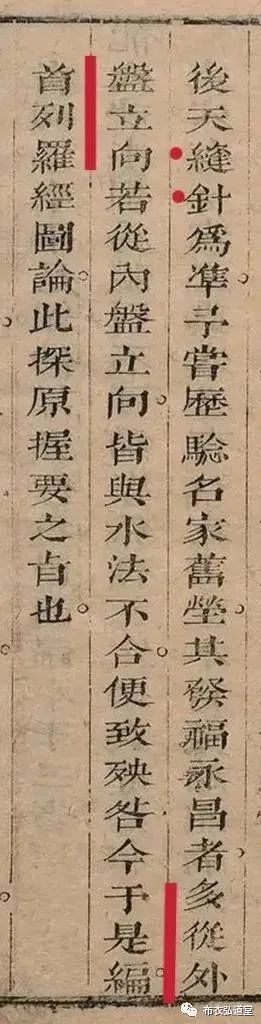 後天縫針爲準予嘗歷驗名家舊塋其發福永昌者多從外
盤立向若從內盤立向皆與水法不合便致殃咎今于是編
首列羅經圖論此探原握要之旨也
布衣弘道堂